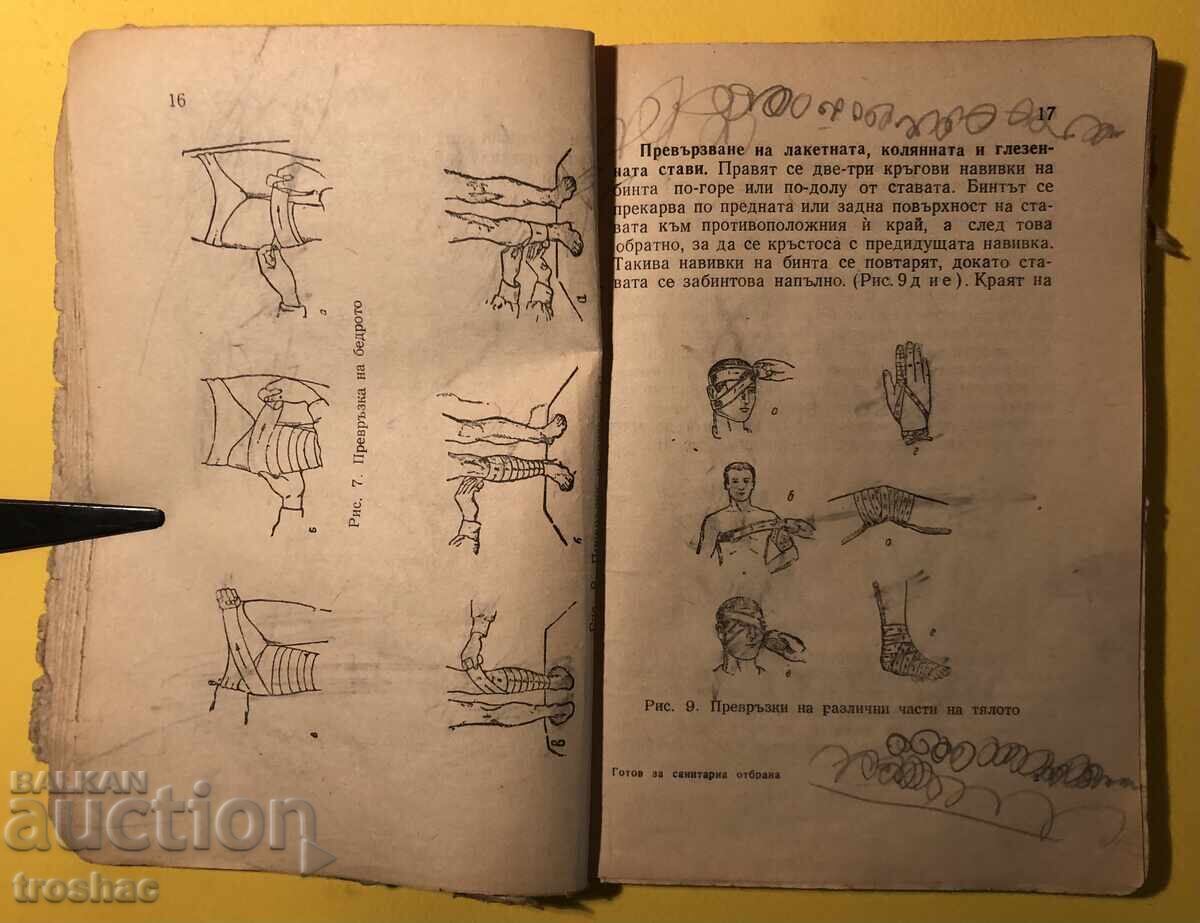 16
а
Рис. 7. Превръзка на бедрото
б
в
а
б
в
17
Превързване на лакетната, колянната и глезен-
ната стави. Правят се две-три кръгови навивки на
бинта по-горе или по-долу от ставата. Бинтът се
прекарва по предната или задна повърхност на ста-
вата към противоположния ѝ край, а след това
обратно, за да се кръстоса с предидущата навивка.
Такива навивки на бинта се повтарят, докато ста-
вата се забинтова напълно. (Рис. 9 д и е). Краят на
а
г
б
в
Рис. 9. Превръзки на различни части на тялото
Готов за санитарна отбрана
BALKAN
auction
troshac